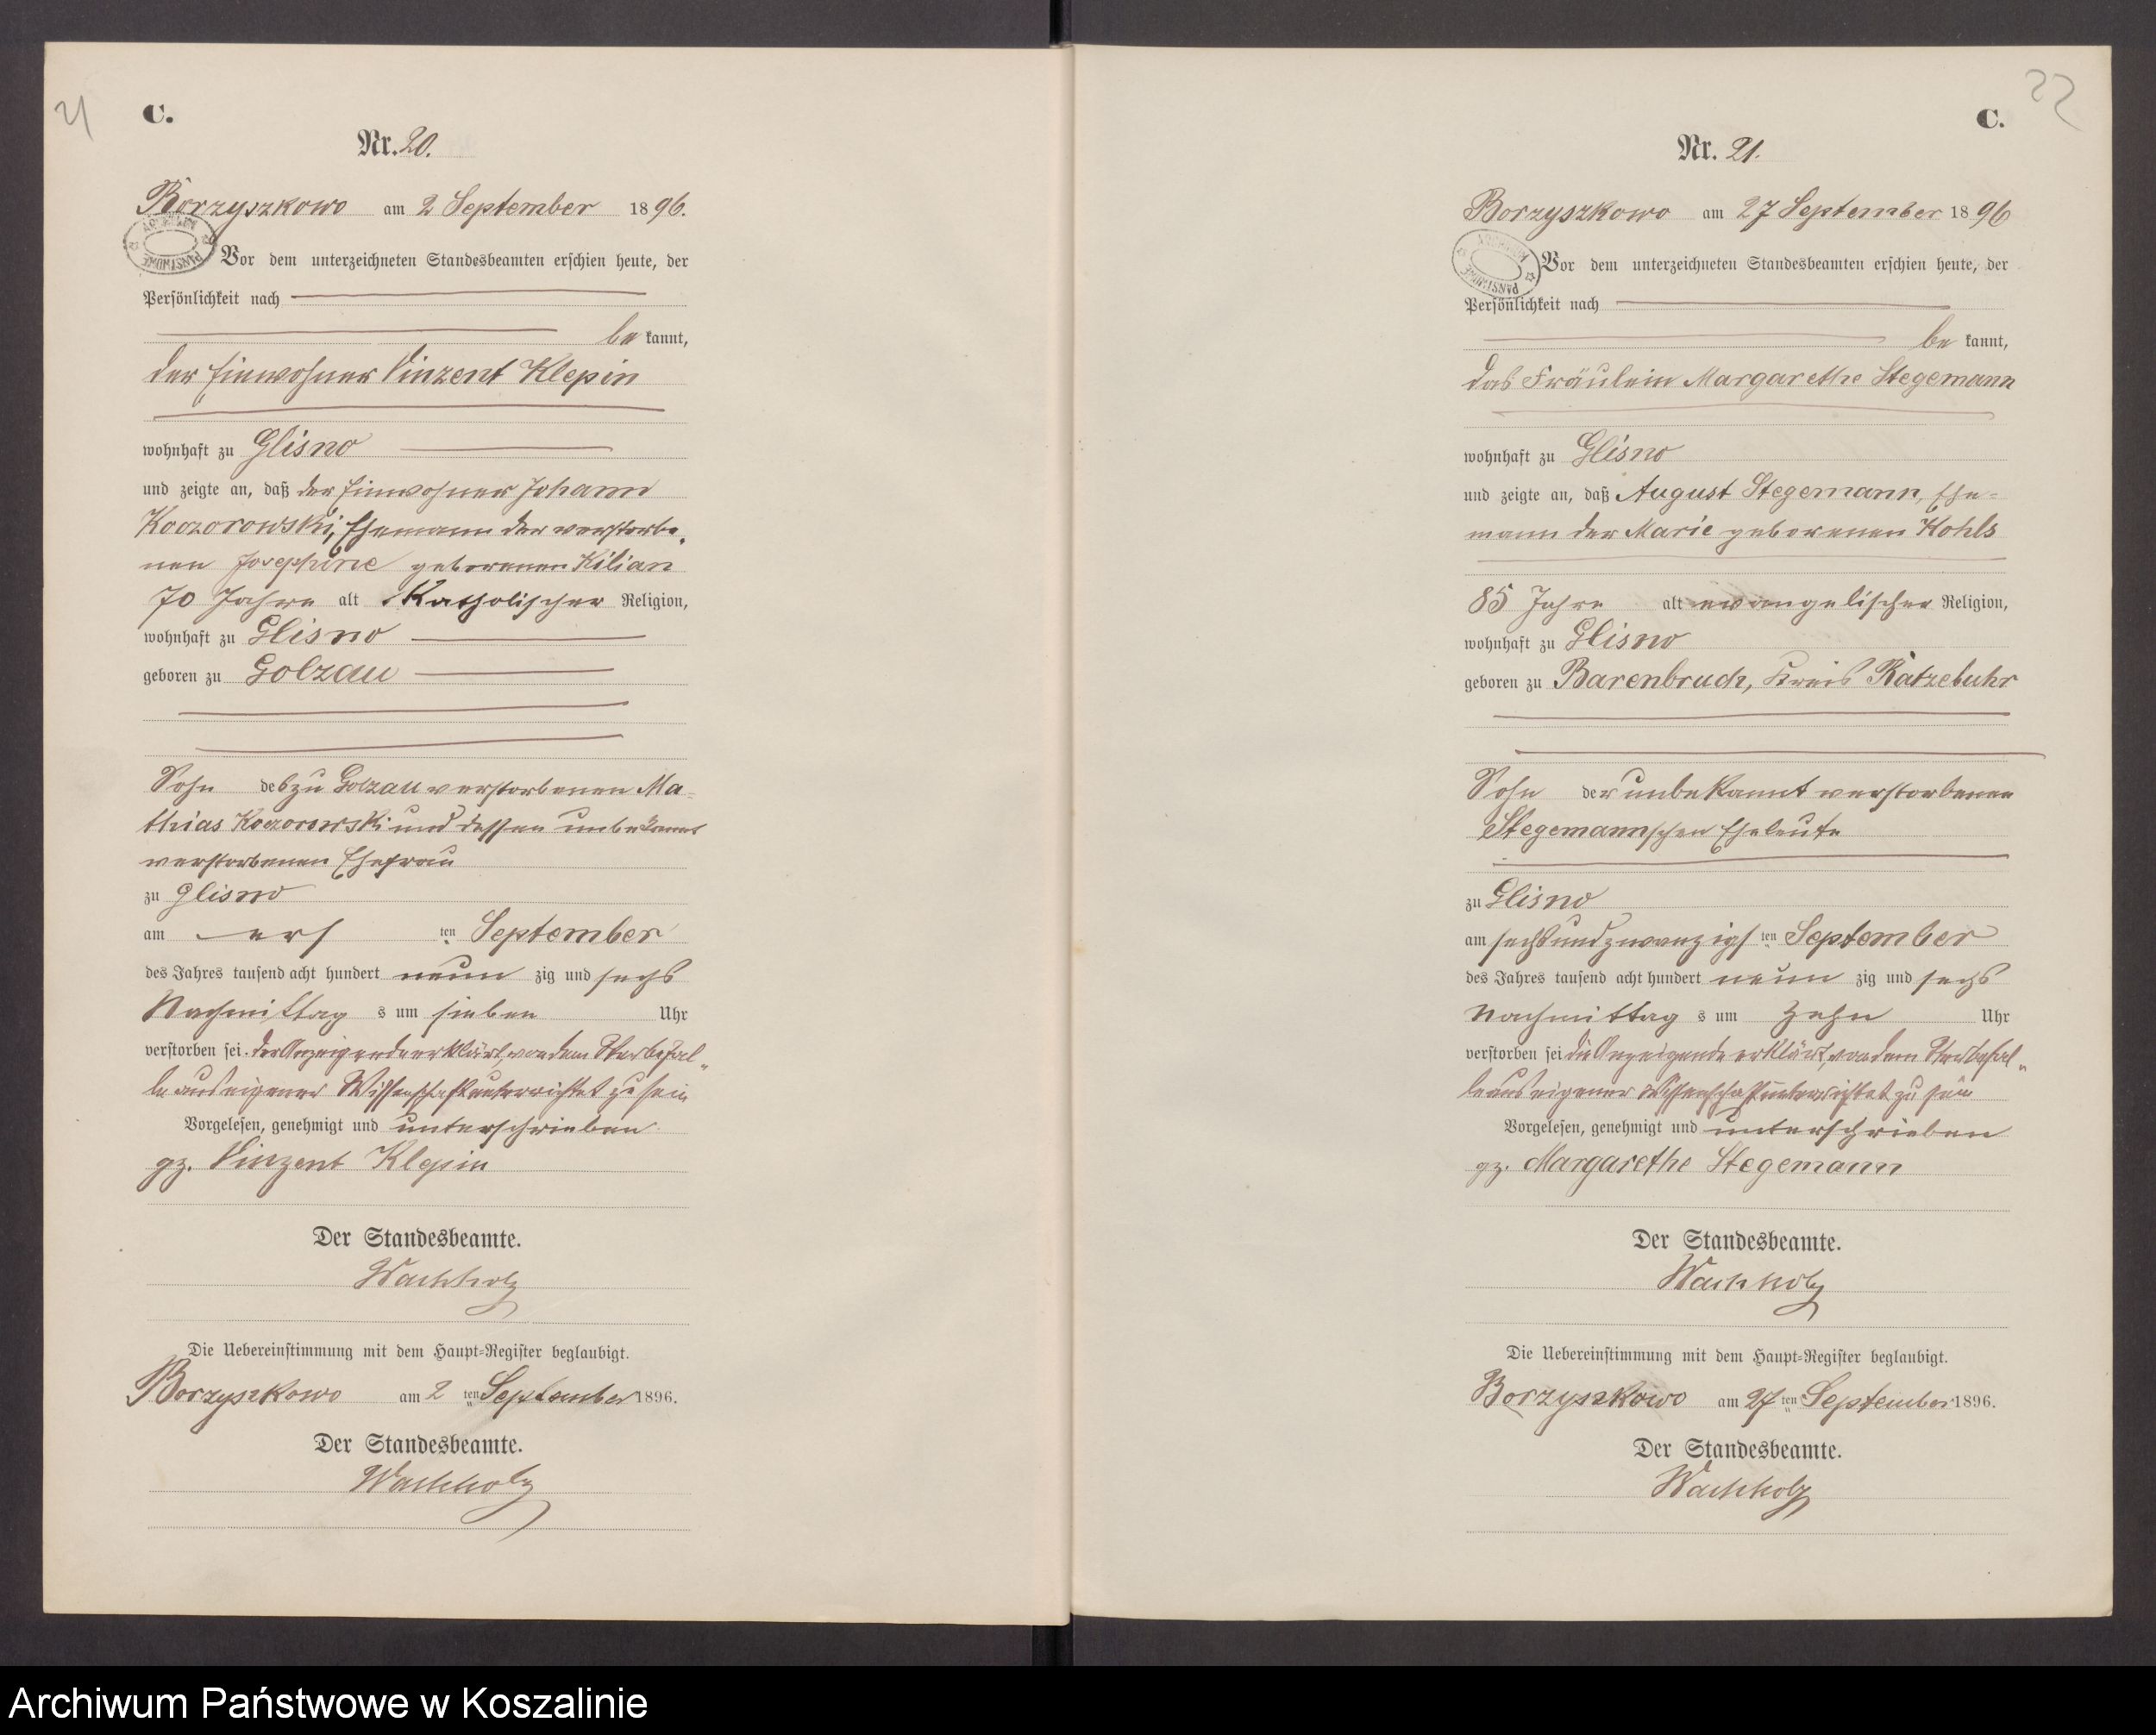 21
C.
Nr. 20.
Borzyszkowo am 2 September 1896.
Vor dem unterzeichneten Standesbeamten erschien heute, der
Persönlichkeit nach
be kannt,
der Einwohner Vinzent Klepin
wohnhaft zu Glisno
und zeigte an, daß der Einwohner Johann
Koczorowski, Ehemann der verstorbe-
nen Josephine geborenen Kilian
70 Jahre alt Katholischer Religion,
wohnhaft zu Glisno
geboren zu Golzau
Sohn des zu Golzau verstorbenen Ma-
thias Koczorowski und dessen unbekannt
verstorbenen Ehefrau
zu Glisno
am ers ten September
des Jahres tausend acht hundert neun zig und sechs
Nachmittag s um sieben Uhr
verstorben sei. Der Anzeigende erklärt, von dem Sterbefal-
le aus eigener Wissenschaft unterrichtet zu sein
Vorgelesen, genehmigt und unterschrieben
gz. Vinzent Klepin
Der Standesbeamte.
Wachholz
Die Uebereinstimmung mit dem Haupt-Register beglaubigt.
Borzyszkowo am 2 ten September 1896.
Der Standesbeamte.
Wachholz
22
C.
Nr. 21.
Borzyszkowo am 27 September 1896
Vor dem unterzeichneten Standesbeamten erschien heute, der
Persönlichkeit nach
be kannt,
das Fräulein Margarethe Stegemann
wohnhaft zu Glisno
und zeigte an, daß August Stegemann, Ehe-
mann der Marie geborenen Kohls
85 Jahre alt evangelischer Religion,
wohnhaft zu Glisno
geboren zu Barenbruch, Kreis Ratzebuhr
Sohn der unbekannt verstorbenen
Stegemannschen Eheleute
zu Glisno
am sechsundzwanzigs ten September
des Jahres tausend acht hundert neun zig und sechs
Nachmittag s um zehn Uhr
verstorben sei die Anzeigende erklärt, von dem Sterbefal-
le aus eigener Wissenschaft unterrichtet zu sein
Vorgelesen, genehmigt und unterschrieben
gz. Margarethe Stegemann
Der Standesbeamte.
Wachholz
Die Uebereinstimmung mit dem Haupt-Register beglaubigt.
Borzyszkowo am 27 ten September 1896.
Der Standesbeamte.
Wachholz
Archiwum Państwowe w Koszalinie